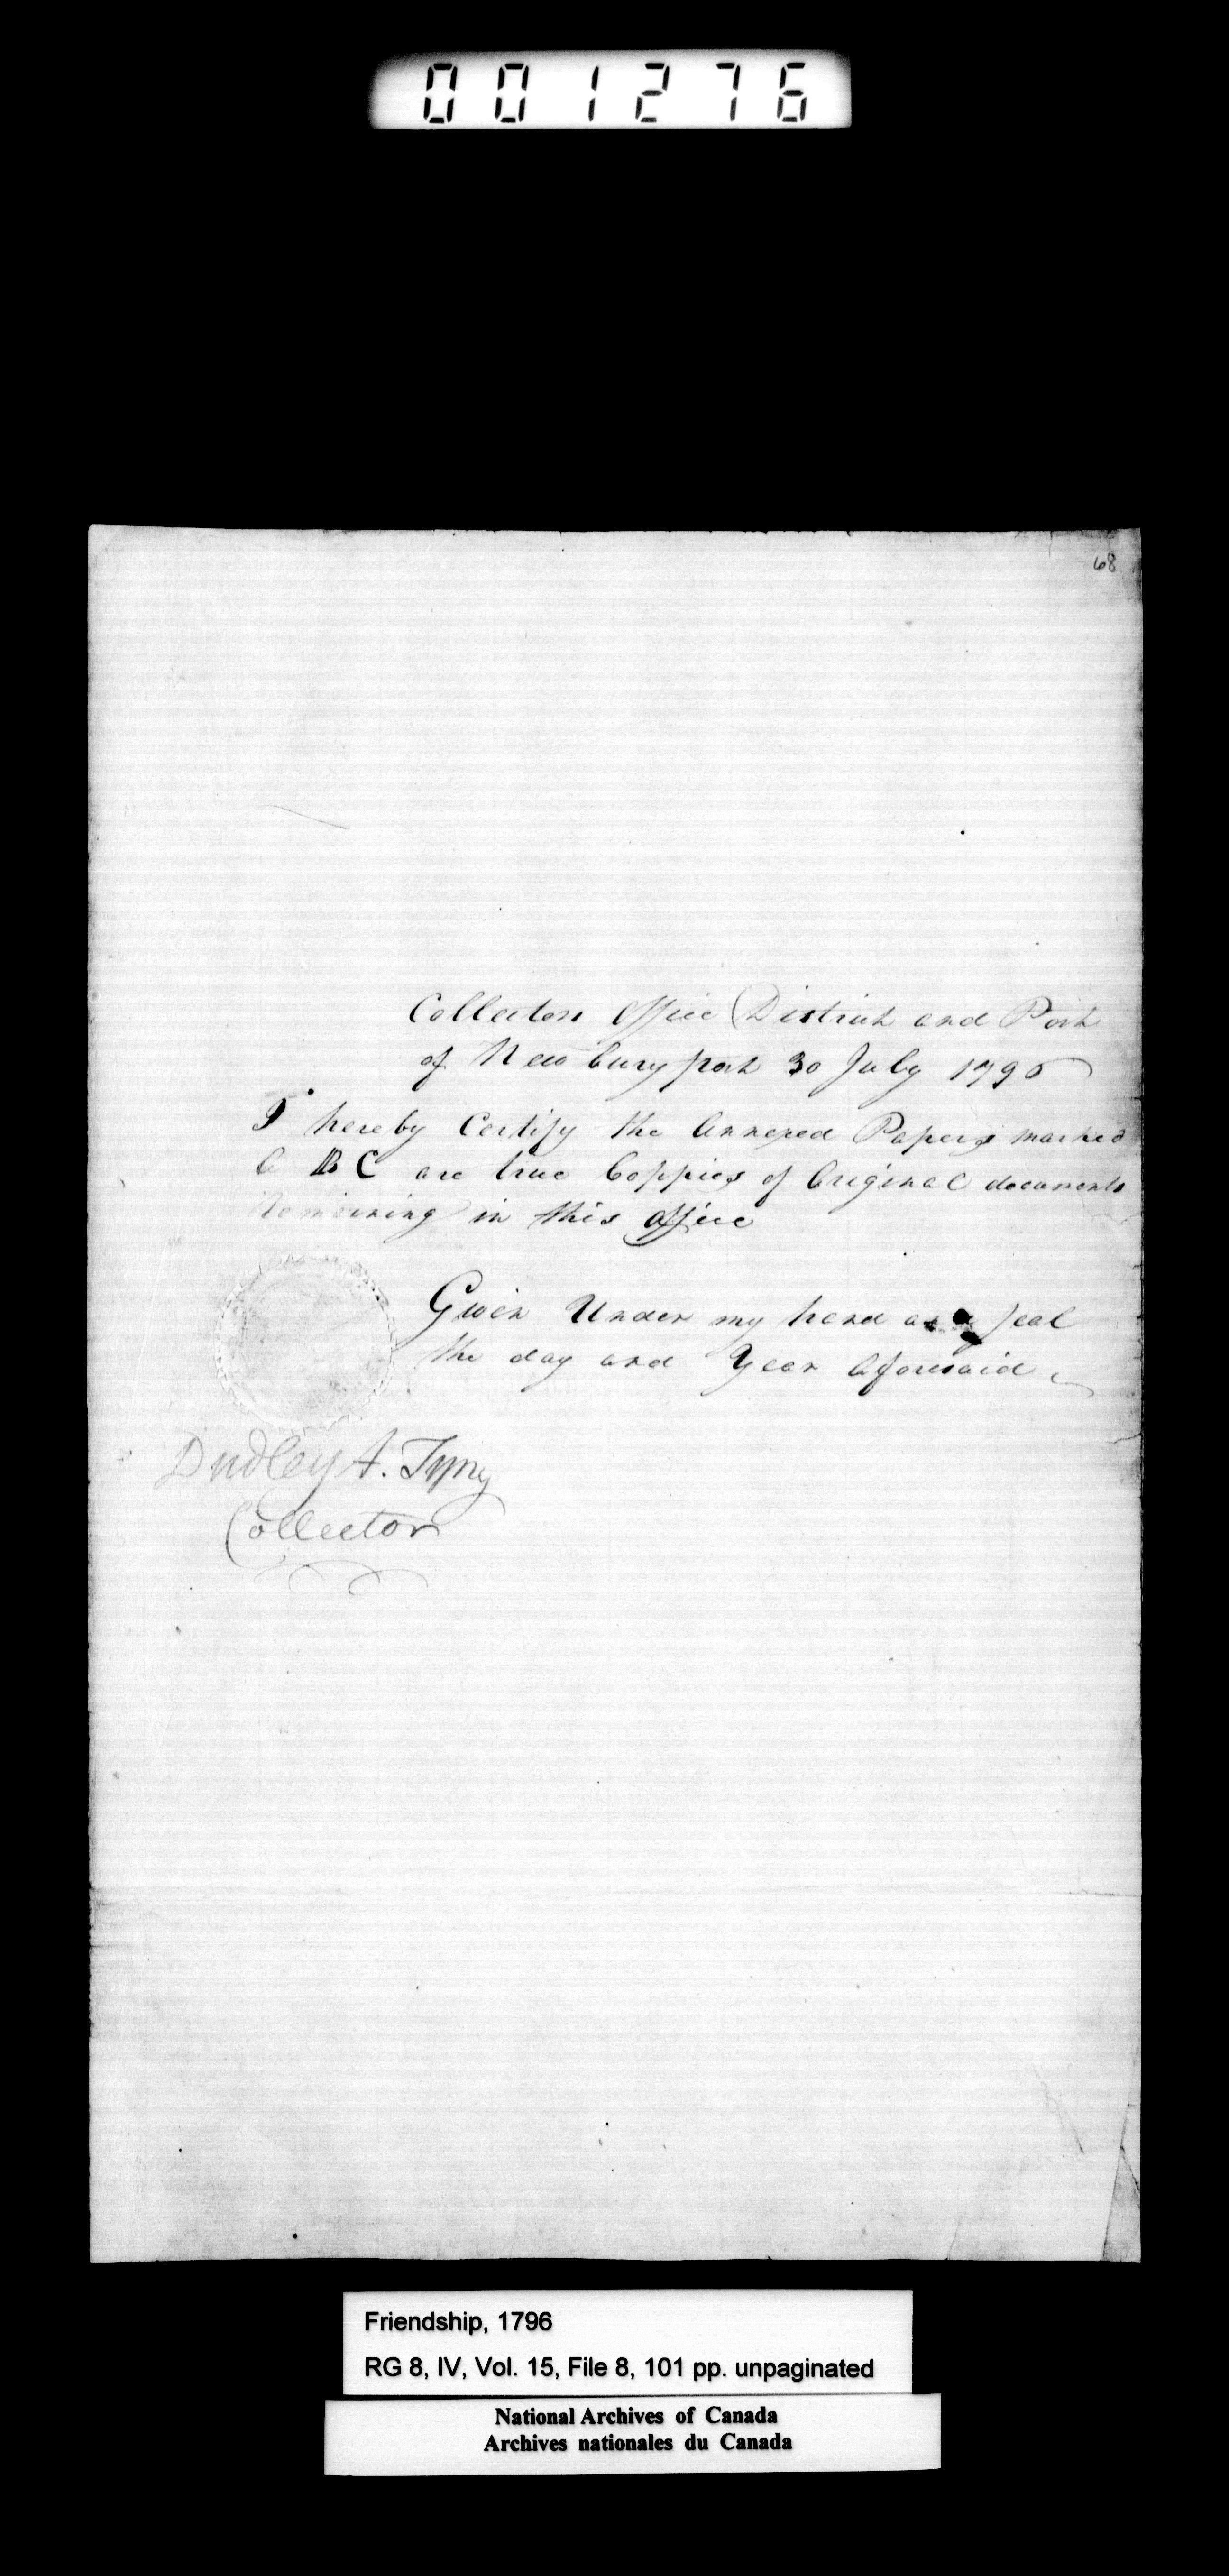 001276
68
Collectors Office District and Port
of Newbury port 30 July 1796
I hereby Certify the Annexed Papers marked
A B C are true Coppies of Original documents
Remaining in this Office
Given Under my hand and seal
the day and Year Aforesaid
Dudley A. Tyng
Collector
Friendship, 1796
RG 8, IV, Vol. 15, File 8, 101 pp. unpaginated
National Archives of Canada
Archives nationales du Canada